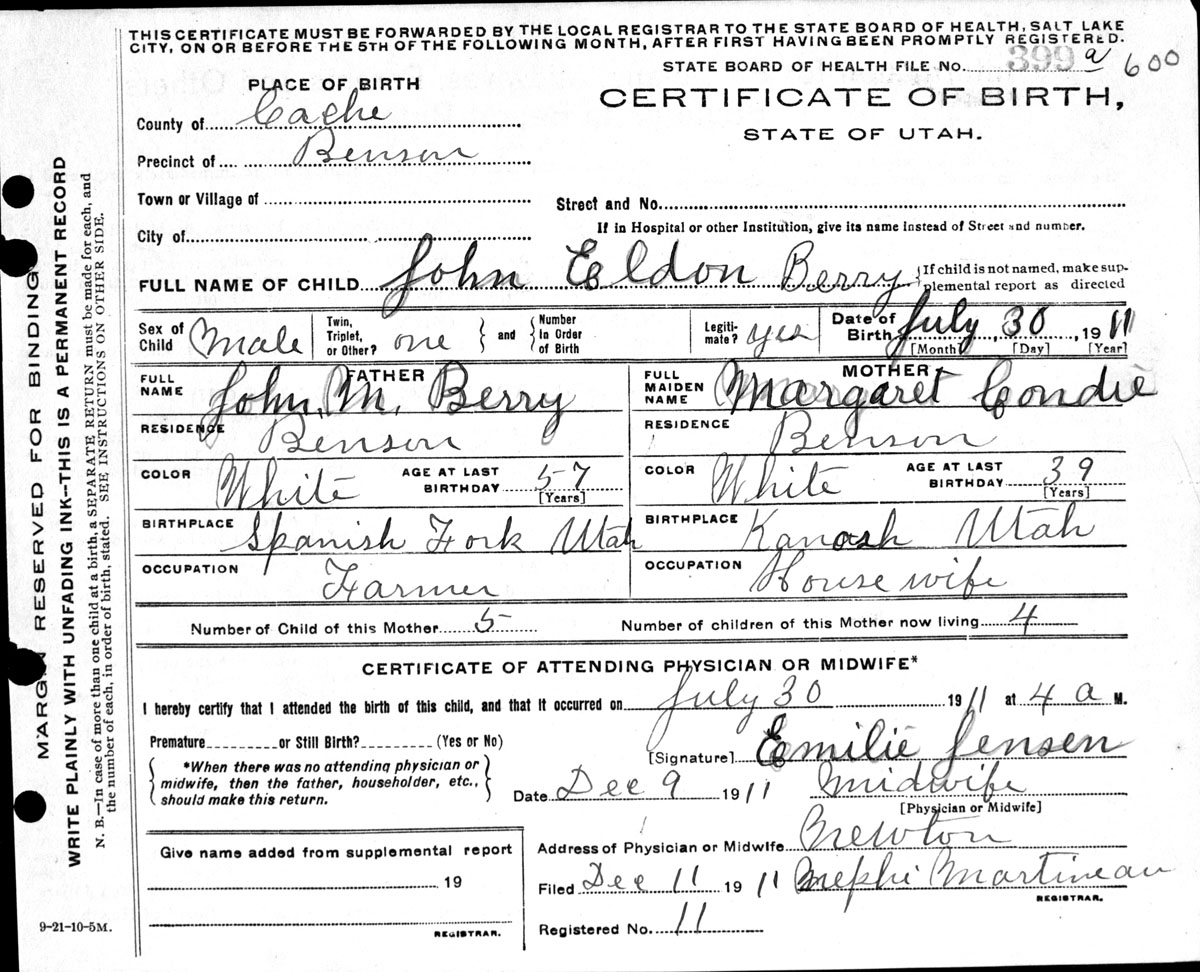 THIS CERTIFICATE MUST BE FORWARDED BY THE LOCAL REGISTRAR TO THE STATE BOARD OF HEALTH, SALT LAKE
CITY, ON OR BEFORE THE 5TH OF THE FOLLOWING MONTH, AFTER FIRST HAVING BEEN PROMPTLY REGISTERED.
STATE BOARD OF HEALTH FILE NO. 399 a 600
PLACE OF BIRTH
CERTIFICATE OF BIRTH,
STATE OF UTAH.
County of Cache
Precinct of Benson
Town or Village of
Street and No.
City of
If in Hospital or other Institution, give its name instead of Street and number.
FULL NAME OF CHILD John Eldon Berry { If child is not named, make sup-
plemental report as directed
Sex of Child Male Twin, Triplet, or Other? one } and { Number In Order of Birth Legiti- mate? yes Date of Birth July 30, 1911
[Month] [Day] [Year]
FATHER
FULL NAME John M. Berry
RESIDENCE Benson
COLOR White AGE AT LAST BIRTHDAY 57
[Years]
BIRTHPLACE Spanish Fork Utah
OCCUPATION Farmer
MOTHER
FULL MAIDEN NAME Margaret Condie
RESIDENCE Benson
COLOR White AGE AT LAST BIRTHDAY 39
[Years]
BIRTHPLACE Kanosh Utah
OCCUPATION House wife
Number of Child of this Mother 5 Number of children of this Mother now living 4
CERTIFICATE OF ATTENDING PHYSICIAN OR MIDWIFE*
I hereby certify that I attended the birth of this child, and that it occurred on July 30 1911 at 4 a M.
Premature or Still Birth? (Yes or No)
[Signature] Emilie Jensen
*When there was no attending physician or
midwife, then the father, householder, etc.,
should make this return.
Date Dec 9 1911 Midwife
[Physician or Midwife]
Give name added from supplemental report
19
REGISTRAR.
Address of Physician or Midwife Newton
Filed Dec 11 1911 Nephi Martineau
REGISTRAR.
Registered No. 11
9-21-10-5M.
MARGIN RESERVED FOR BINDING
WRITE PLAINLY WITH UNFADING INK--THIS IS A PERMANENT RECORD
N. B.—In case of more than one child at a birth, a SEPARATE RETURN must be made for each, and
the number of each, in order of birth, stated. SEE INSTRUCTIONS ON OTHER SIDE.